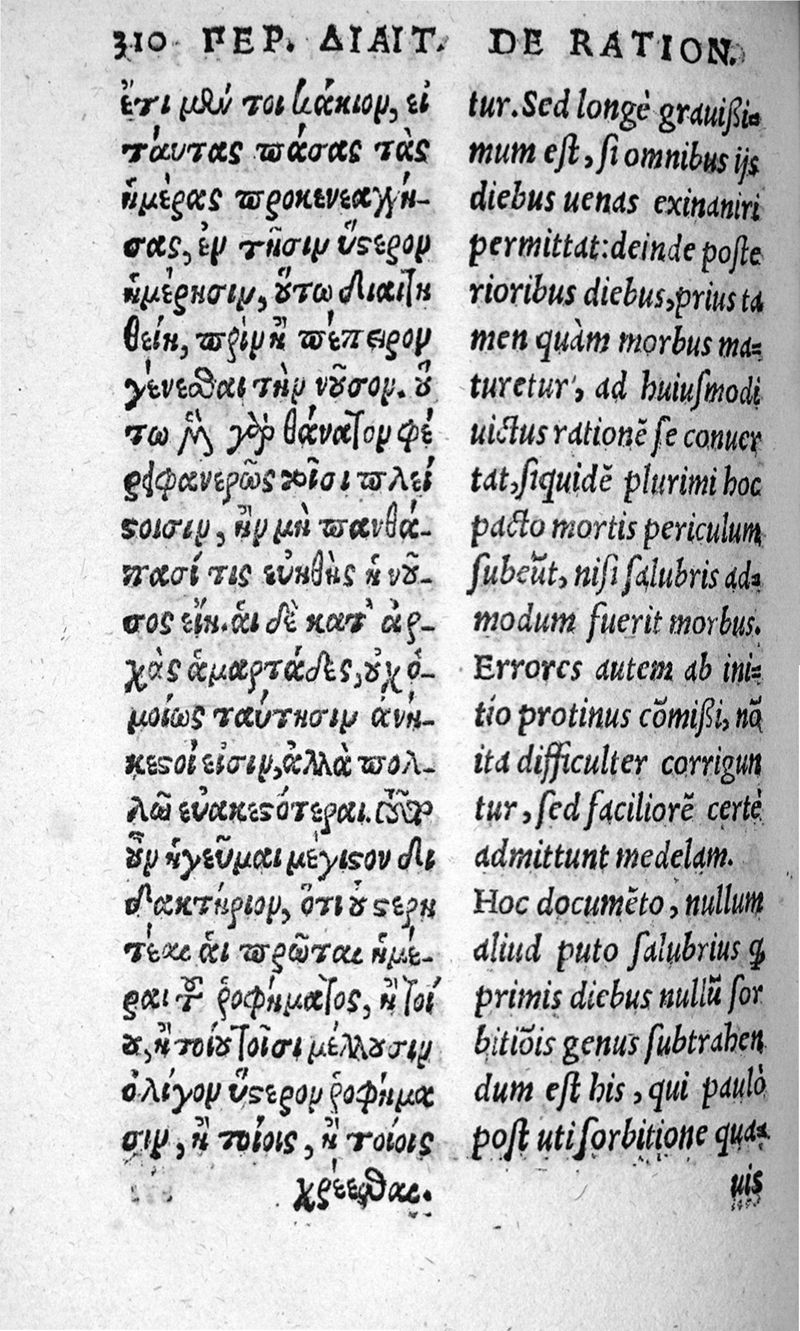 310 ΠΕΡ. ΔΙΑΙΤ. DE RATION.
ἔτι μὲν τοι κάκιον, εἰ
ταύτας πάσας τὰς
ἡμέρας προκενεαγγή-
σας, ἐν τῇσιν ὕστερον
ἡμέρῃσιν, οὕτω διαιτη
θείη, πρὶν ἢ πέπειρον
γενέσθαι τὴν νοῦσον. οὕ
τω μὲν γὰρ θάνατον φέ
ρει φανερῶς τοῖσι πλεί
στοισιν, ἢν μὴ πανθά-
πασί τις εὐήθης ἡ νοῦ-
σος εἴη. αἱ δὲ κατ᾽ ἀρ-
χὰς ἁμαρτάδες, οὐχ ὁ-
μοίως ταύτῃσιν ἀνή-
κεστοί εἰσιν, ἀλλὰ πολ-
λῷ εὐακεστότεραι. τοῦτο
οὖν ἡγεῦμαι μέγιστον δι
δακτήριον, ὅτι οὐ στερη
τέαι αἱ πρῶται ἡμέ-
ραι τοῦ ῥοφήματος, ἢ τοί
ου, ἢ τοίου τοῖσι μέλλουσιν
ὀλίγον ὕστερον ῥοφήμα
σιν, ἢ τοίοις, ἢ τοίοις
χρέεσθαι.
tur. Sed longè grauißi-
mum eſt, ſi omnibus ijs
diebus uenas exinaniri
permittat: deinde poſte
rioribus diebus, prius ta
men quàm morbus ma-
turetur, ad huiuſmodi
uictus rationẽ ſe conuer
tat, ſiquidẽ plurimi hoc
pacto mortis periculum
ſubeũt, niſi ſalubris ad-
modum fuerit morbus.
Errores autem ab ini-
tio protinus cõmißi, nõ
ita difficulter corrigun
tur, ſed faciliorẽ certè
admittunt medelam.
Hoc documẽto, nullum
aliud puto ſalubrius ꝗ̃
primis diebus nullũ ſor
bitiõis genus ſubtrahen
dum eſt his, qui paulò
poſt uti ſorbitione qua-
uis